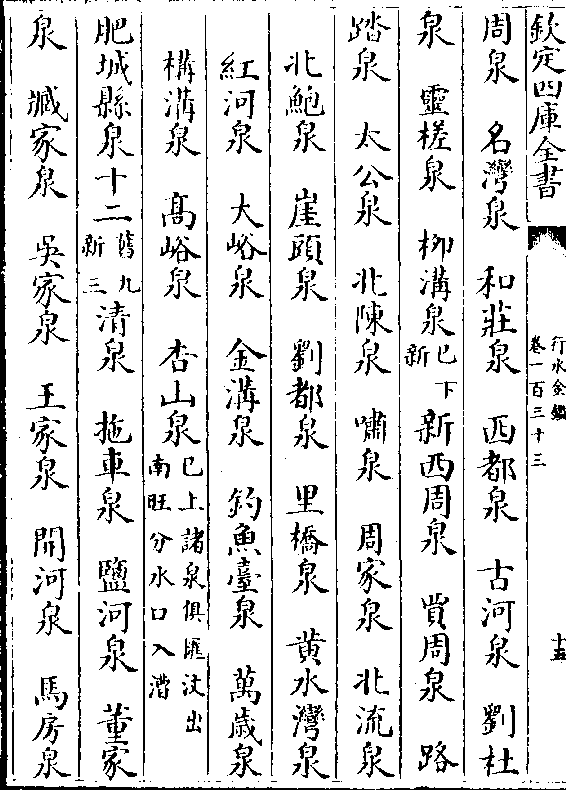 欽定四庫全書
行水金鑑
卷一百三十三
十五
周泉 名灣泉 和莊泉 西都泉 古河泉 劉杜
泉 靈槎泉 柳溝泉 已下新 新西周泉 賈周泉 路
踏泉 太公泉 北陳泉 嘯泉 周家泉 北流泉
北鮑泉 崖頭泉 劉都泉 里橋泉 黃水灣泉
紅河泉 大峪泉 金溝泉 釣魚臺泉 萬歲泉
構溝泉 高峪泉 杏山泉 已上諸泉俱匯汶出南旺分水口入漕
肥城縣泉十二 舊九新三 清泉 拖車泉 鹽河泉 董家
泉 臧家泉 吳家泉 王家泉 開河泉 馬房泉